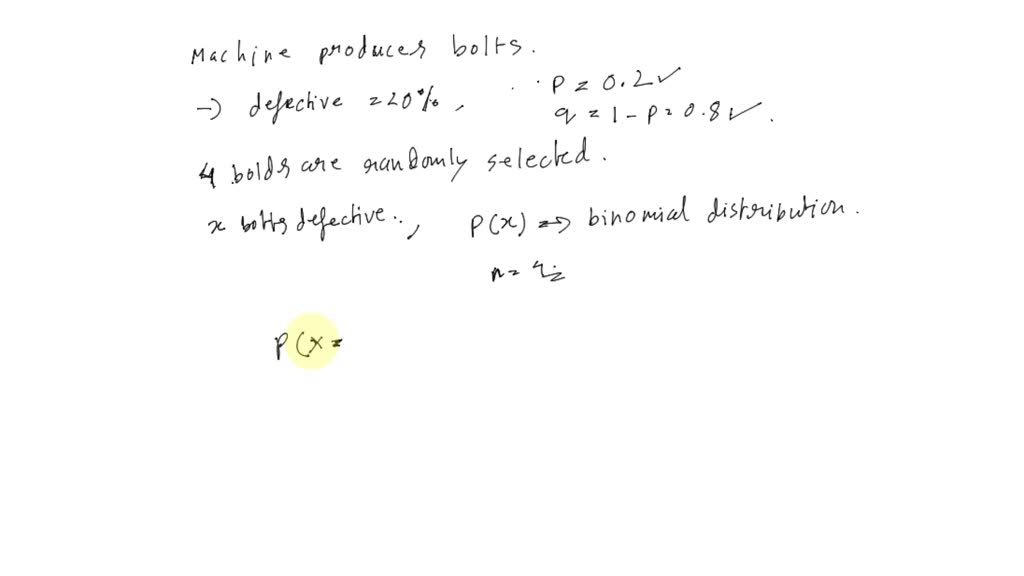 Machine produces bolts.
→ defective = 20%, ∴ p = 0.2 ✓
q = 1 - p = 0.8 ✓.
4 bolds are randomly selected.
x bolts defective., P(x) ⇒ binomial distribution.
n = 4
P(x =